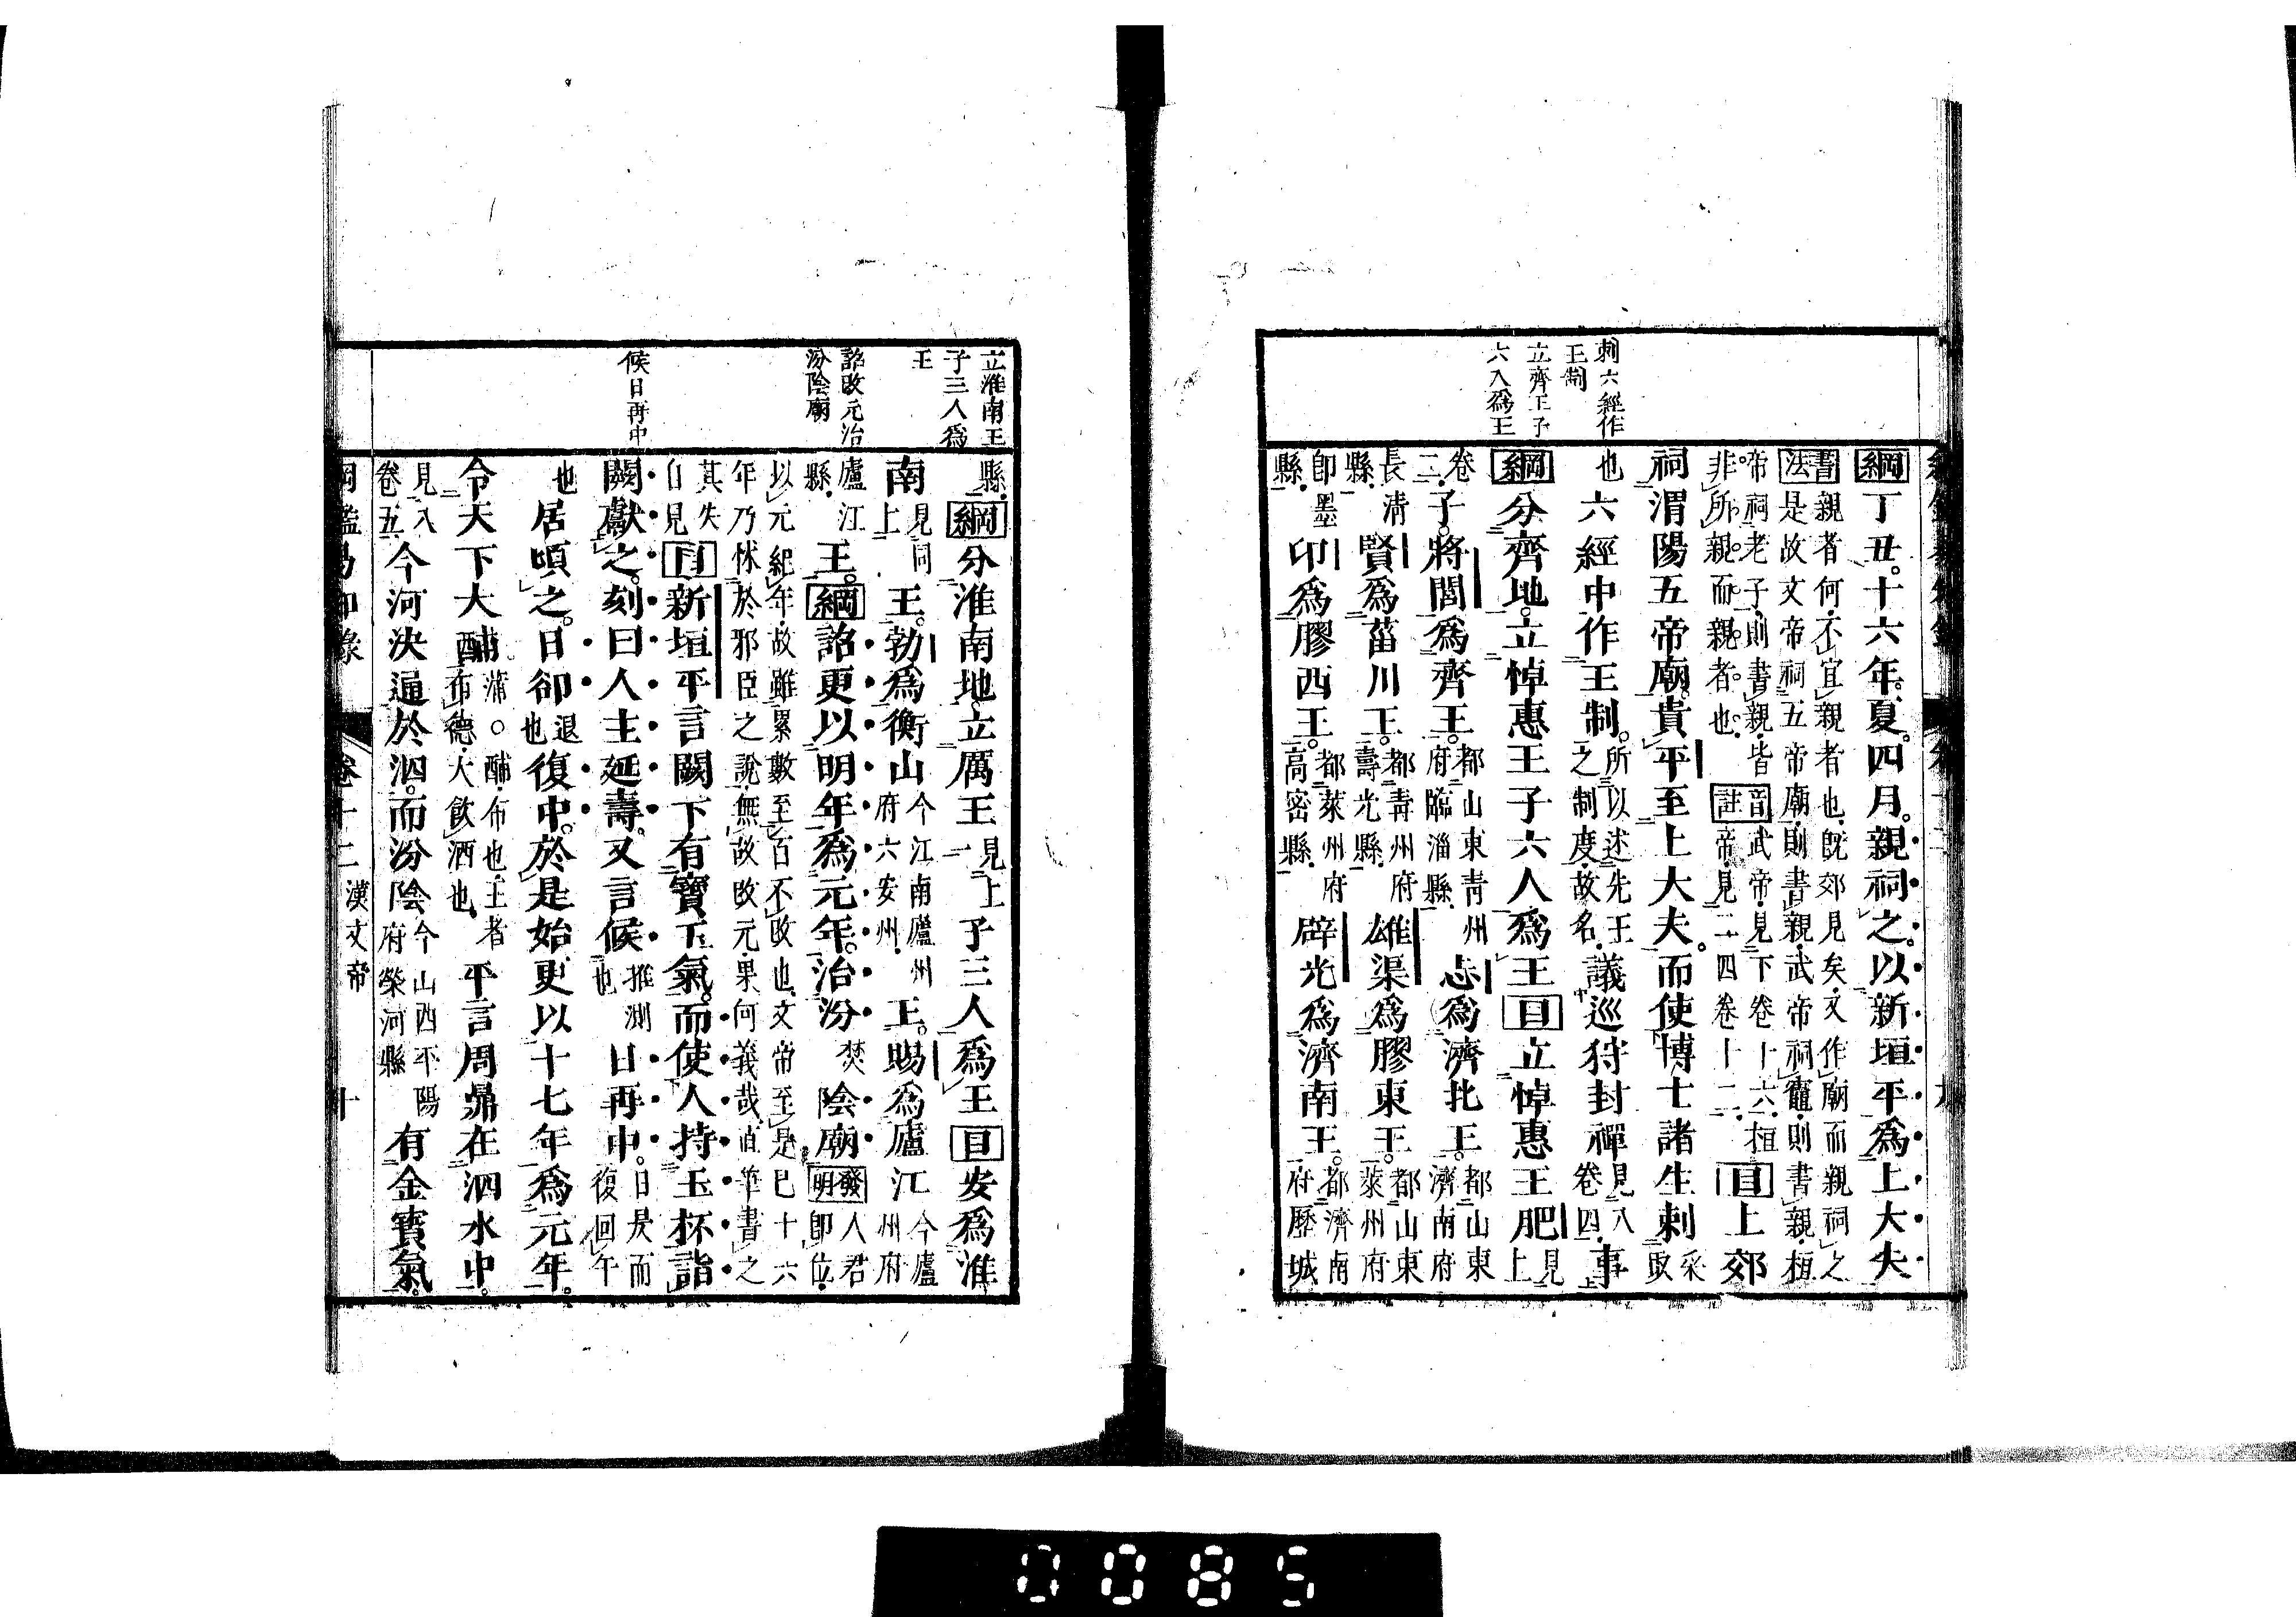 刺六經作
王制
立齊王子
六人爲王
綱丁丑。十六年。夏。四月。親祠之。以新垣平爲上大夫
書法親者何。不宜親者也。既郊見矣。又作廟而親祠之
是故文帝祠五帝廟。則書親。武帝祠竈。則書親。桓
帝祠老子。則書親。皆
非所親而親者也。
音註武帝。見下卷十六。桓
帝。見二四卷十二。
目上郊
祠渭陽五帝廟。貴平至上大夫。而使博士諸生刺采取
也六經中作王制。所以述先王
之制度。故名。議巡狩封禪見八
卷四。事
綱分齊地。立悼惠王子六人爲王目立悼惠王肥見
上
卷
二。子。將閭爲齊王。都山東青州
府臨淄縣。志爲濟北王。都山東
濟南府
長淸
縣。賢爲菑川王。都青州府
壽光縣。雄渠爲膠東王。都山東
萊州府
卽墨
縣。卬爲膠西王。都萊州府
高密縣。辟光爲濟南王。都濟南
府歷城
立淮南王
子三人爲
王
詔改元治
汾陰廟
候日再中
縣。綱分淮南地。立厲王見上
一子三人爲王目安爲淮
南見同
上王。勃爲衡山今江南廬州
府六安州。王。賜爲廬江今廬
州府
廬江
縣。王。綱詔更以明年爲元年。治汾焚陰廟發明人君
卽位。
以元紀年。故雖累數至百不改也。文帝至是已十六
年乃怵於邪臣之說。無故改元。果何義哉。直筆書之
其失
自見目新垣平言闕下有寶玉氣。而使人持玉杯詣
闕獻之。刻曰人主延壽。又言候推測
也日再中。日昃而
復回午
也居頃之。日卻退
也復中。於是始更以十七年爲元年。
令天下大酺蒲。○酺。布也。王者
布德。大飮酒也。平言周鼎在泗水中。
見入
卷五今河決通於泗。而汾陰今山西平陽
府榮河縣有金寳氣。
卷十二
漢文帝
十
0085